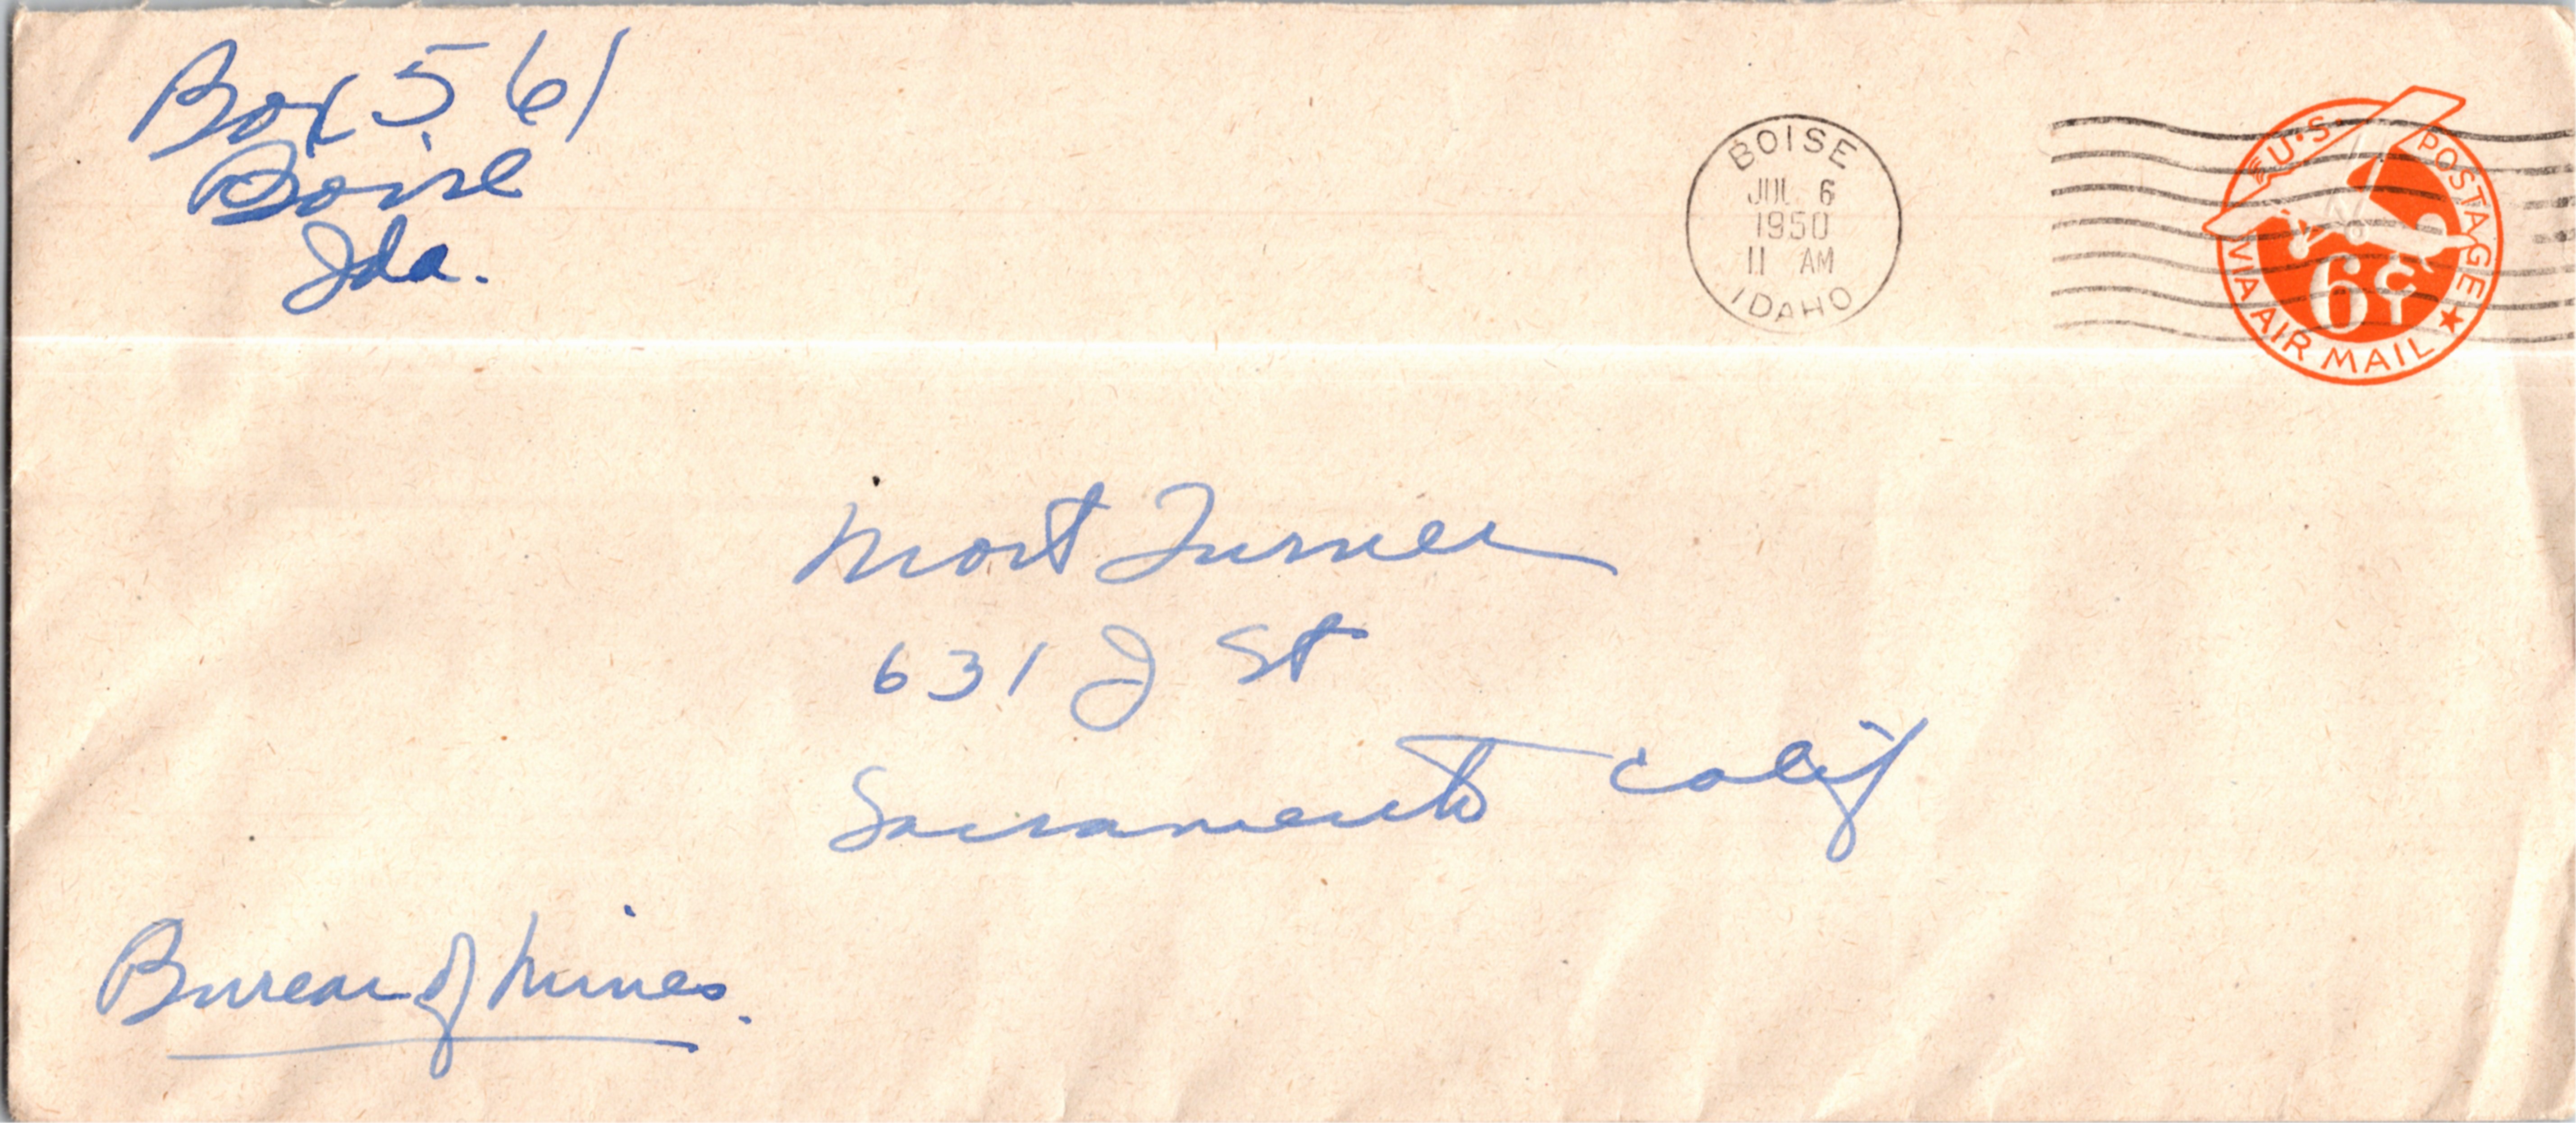 Box 561
Boise
Ida.
BOISE
JUL 6
1950
11 AM
IDAHO
U.S. POSTAGE
6¢
VIA AIR MAIL
Mort Turner
631 J St
Sacramento Calif
Bureau of Mines.